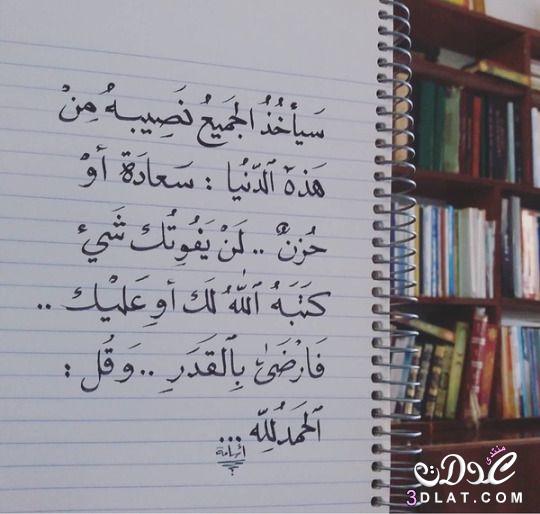 سَيأخُذُ الجَميعُ نَصِيبهُ مِنْ
هَذهْ ٱلدّنُيا : سَعادَة أوْ
حُزنٌ .. لَنْ يَفُوتُك شَيءٍ
كتَبَهُ ٱللّٰهُ لَكَ أوِ عَليْك ..
فَارْضَىٰ بِٱلقَدَرِ .. وَقُل :
ٱلحَمدُ لِلّه ...
أسامة
منتدى عدلات
3DLAT.COM